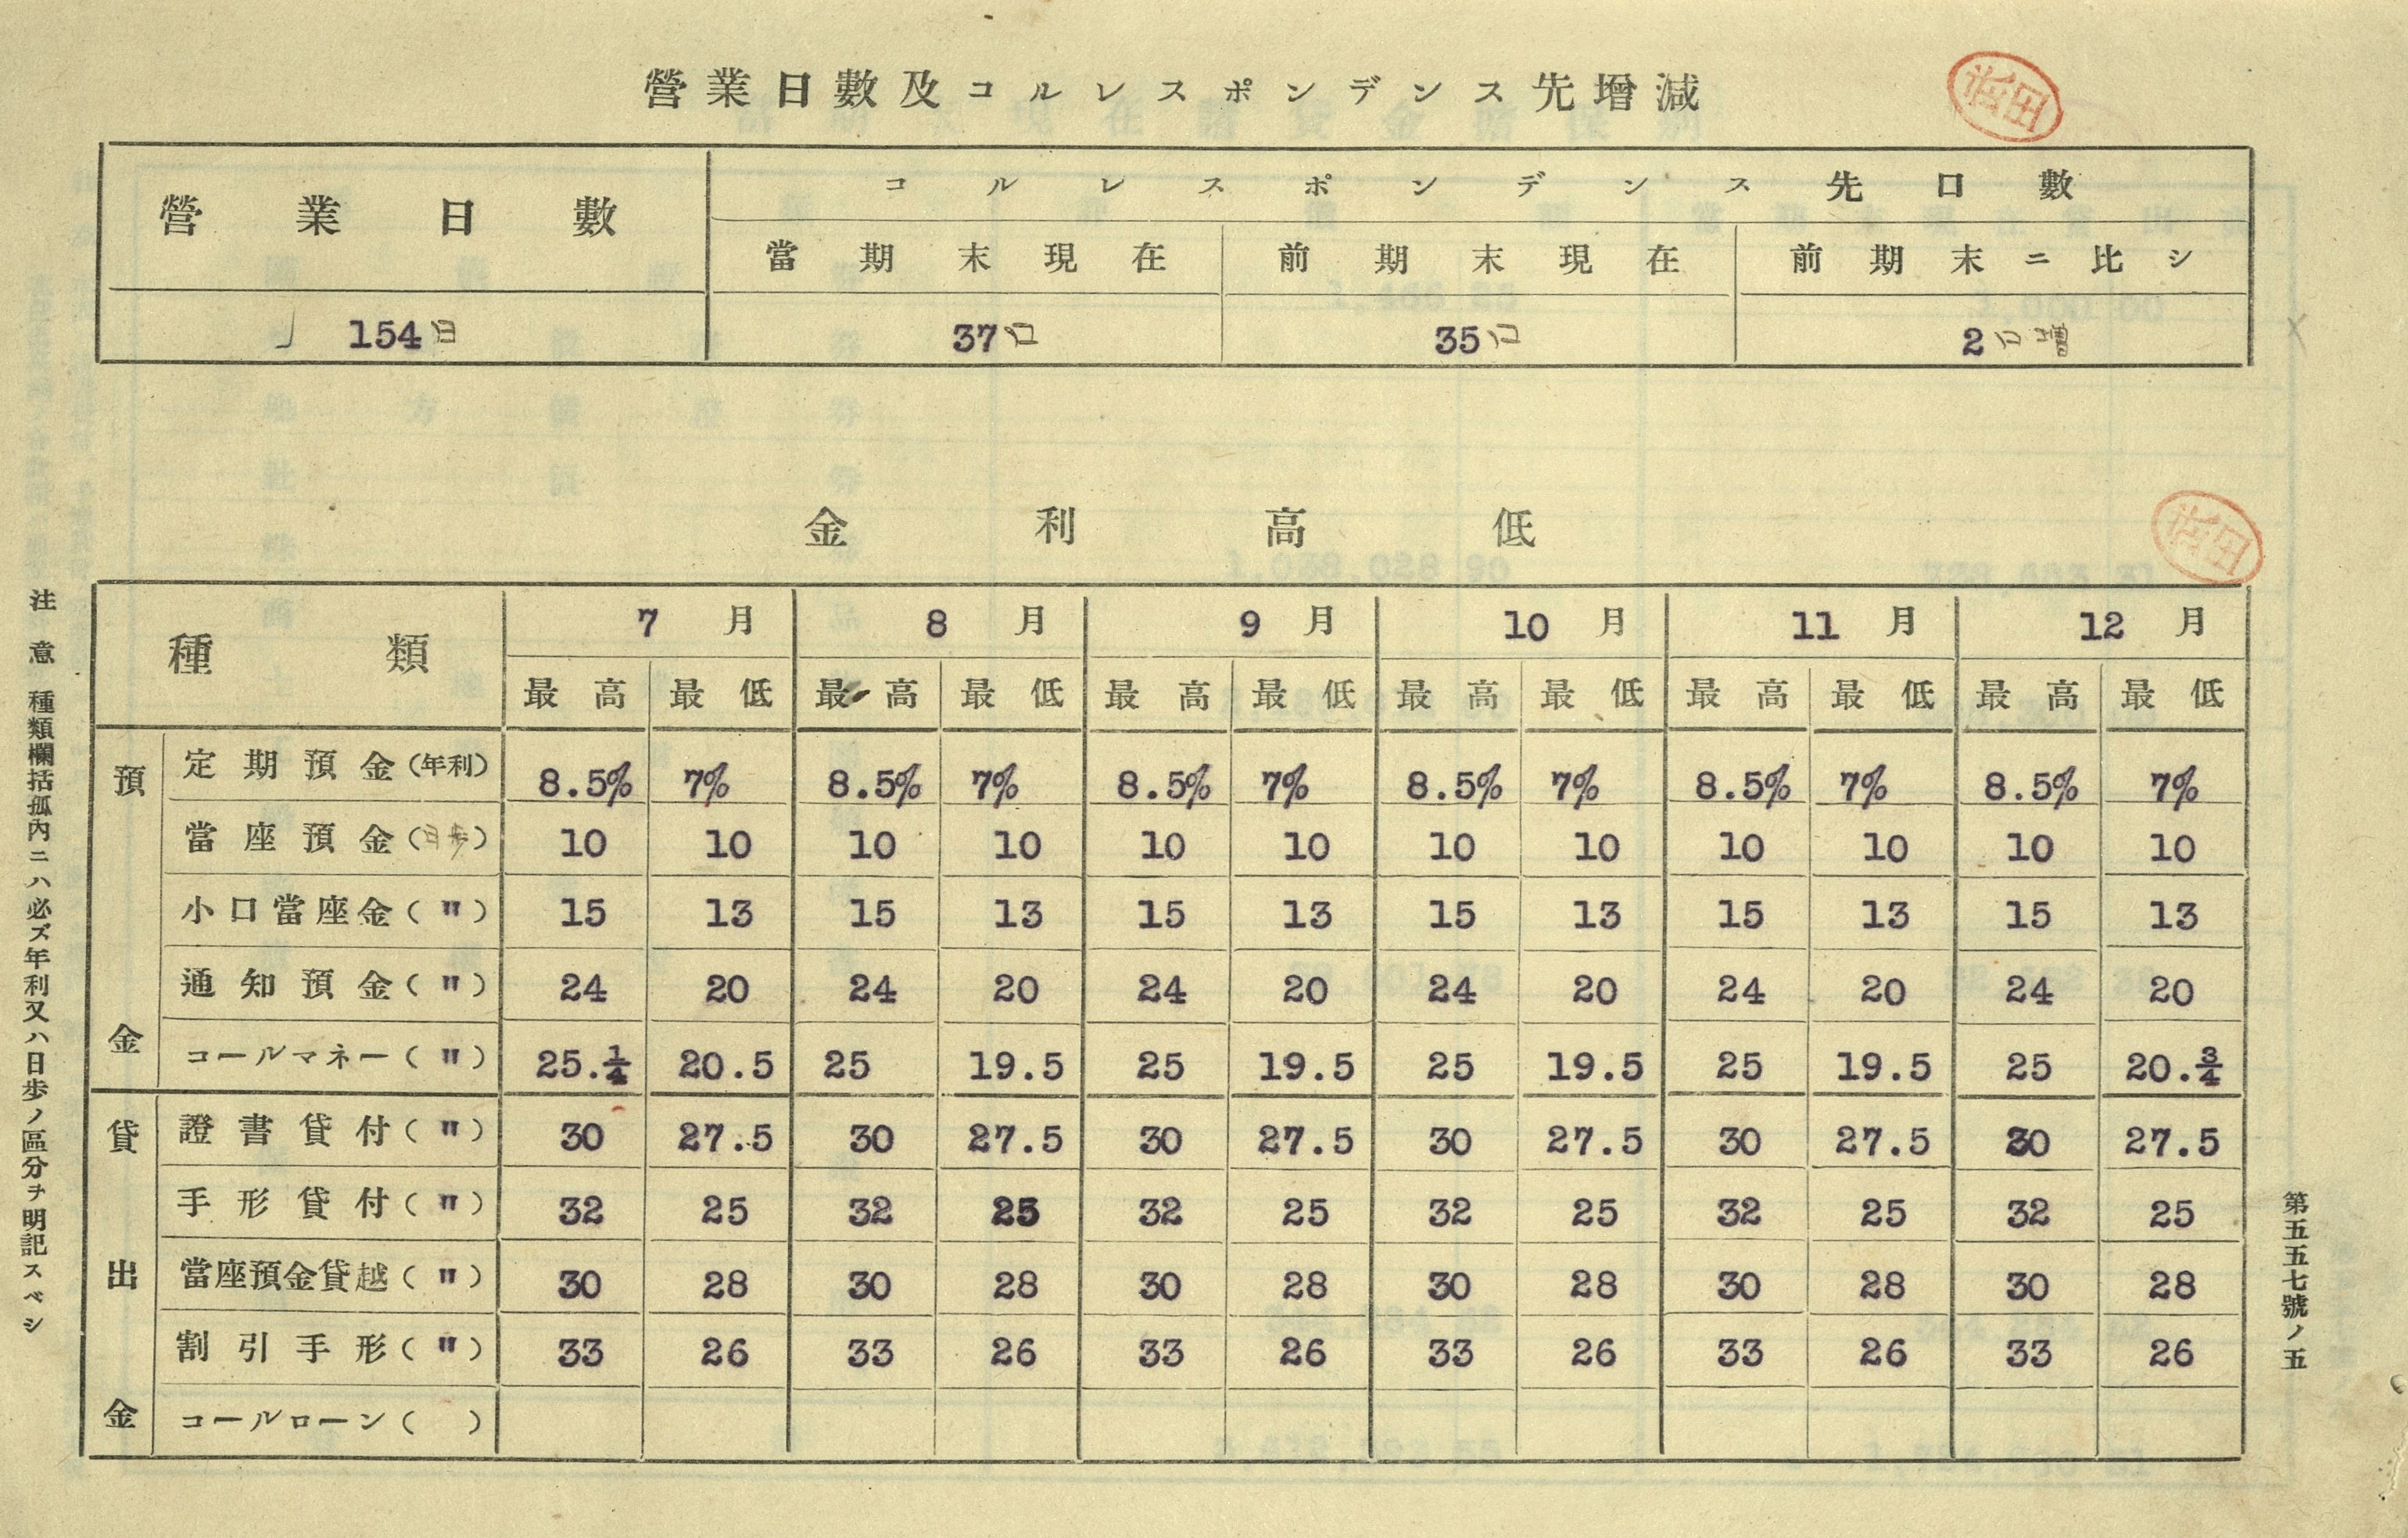 營業日數及コルレスポンデンス先增減
營業日數 コルレスポンデンス先口數
當期末現在 前期末現在 前期末ニ比シ
154日 37口 35口 2口增
金利高低
種類 7月 8月 9月 10月 11月 12月
最高 最低 最高 最低 最高 最低 最高 最低 最高 最低 最高 最低
預金
定期預金(年利) 8.5% 7% 8.5% 7% 8.5% 7% 8.5% 7% 8.5% 7% 8.5% 7%
當座預金(日歩) 10 10 10 10 10 10 10 10 10 10 10 10
小口當座金(〃) 15 13 15 13 15 13 15 13 15 13 15 13
通知預金(〃) 24 20 24 20 24 20 24 20 24 20 24 20
コールマネー(〃) 25.1/4 20.5 25 19.5 25 19.5 25 19.5 25 19.5 25 20.3/4
貸出金
證書貸付(〃) 30 27.5 30 27.5 30 27.5 30 27.5 30 27.5 30 27.5
手形貸付(〃) 32 25 32 25 32 25 32 25 32 25 32 25
當座預金貸越(〃) 30 28 30 28 30 28 30 28 30 28 30 28
割引手形(〃) 33 26 33 26 33 26 33 26 33 26 33 26
コールローン( )
注意 種類欄括孤內ニハ必ズ年利又ハ日歩ノ區分ヲ明記スベシ
第五五七號ノ五